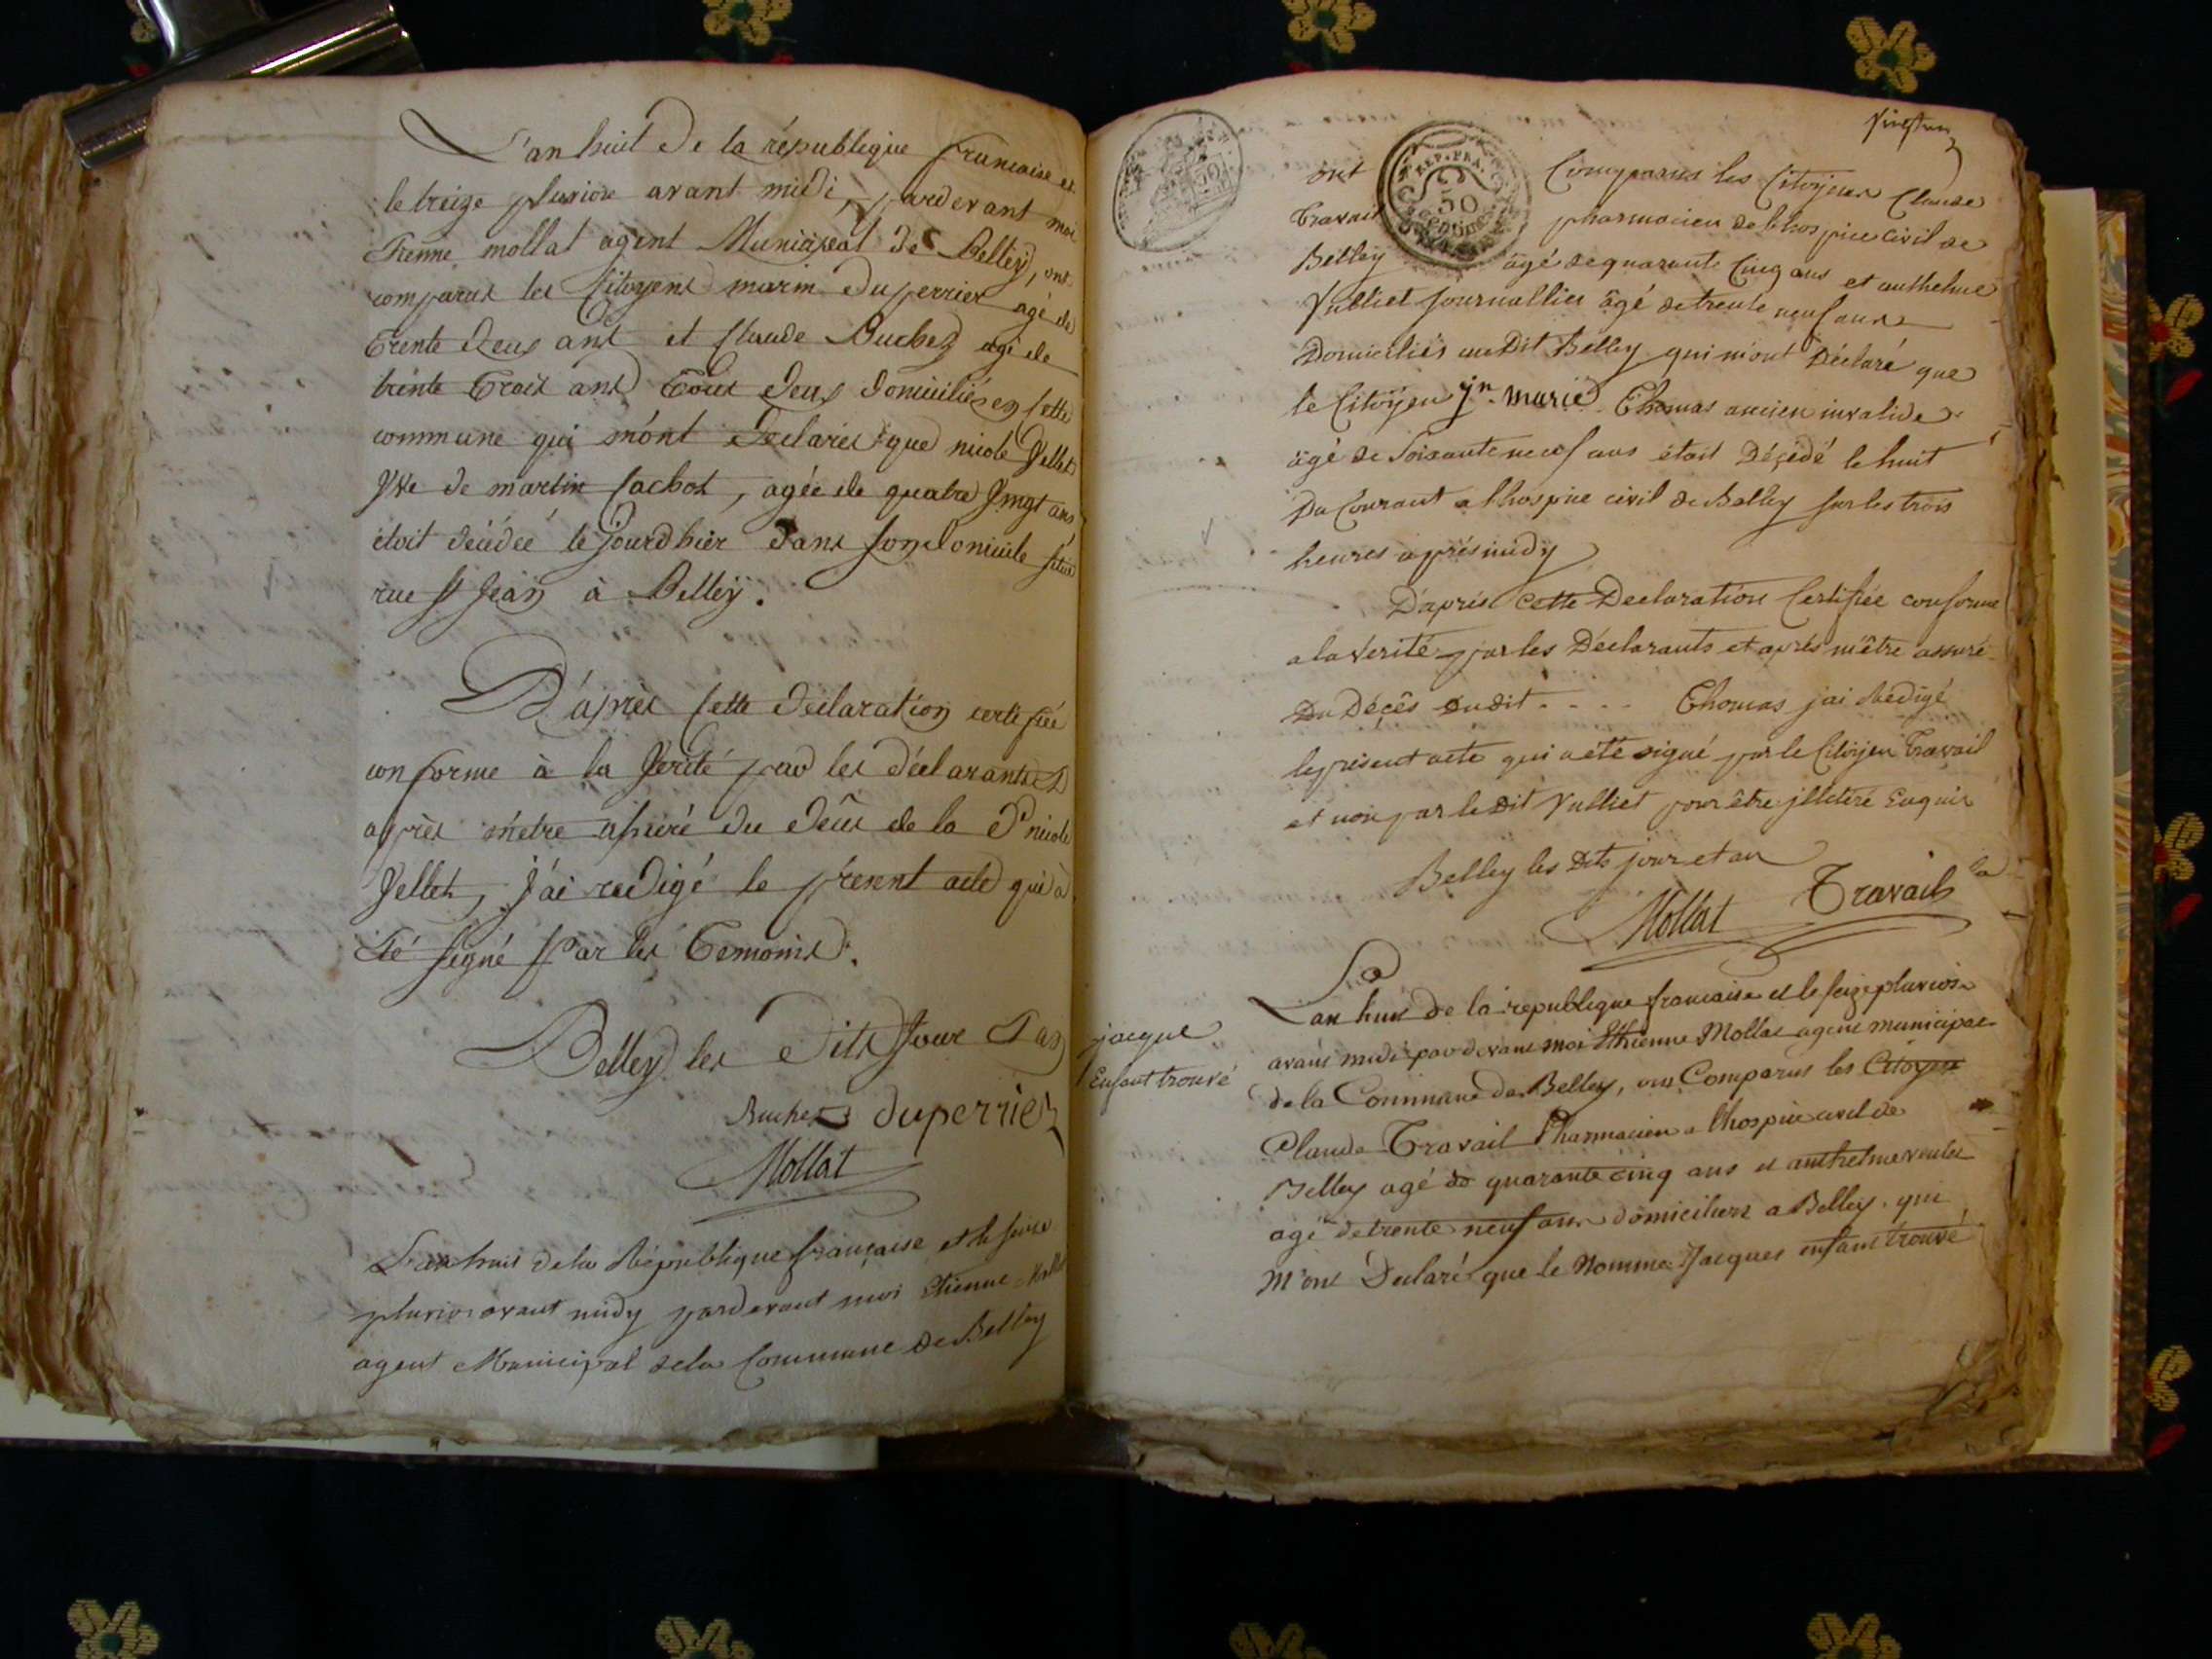 L'an huit De la république francaise et
le treize pluviose avant midi, pardevant moi
Etienne mollat agent Municipal de Belley, ont
comparus les Citoyens marin duperrier agé de
trente deux ans et Claude Buchez agé de
trente trois ans tous deux domiciliés en cette
commune qui m'ont declarés que nicole Vellet
Vve de martin Cachot, agée de quatre vingt ans
étoit décédée le jourdhier dans son domicile situé
rue St Jean à Belley.
D'après cette déclaration certifiée
conforme à la Verité par les déclarants Et
après m'etre assuré du décès de la De nicole
Vellet, j'ai redigé le présent acte qui à
Eté signé par les temoins.
Belley les dits jour Et an
Buchez duperrier
Mollat
L'an huit de la République française et le seize
pluviose avant midy pardevant moi Etienne Mollat
agent Municipal de la Commune de Belley
vingt un
ont Comparus les Citoyens Claude
REP. FRA.
50
CENTIMES
Travail pharmacien de lhospice civil de
Belley âgé de quarante Cinq ans et anthelme
Vulliet Journallier âgé de trente neuf ans
Domiciliés au Dit Belley qui m'ont Déclaré que
le Citoyen jn. marie Thomas ancien invalide
âgé de Soixante neuf ans étoit Décédé le huit
Du Courant a lhospice civil de Belley sur les trois
heures après midy
D'après cette Declaration Certifiée conforme
a la Verité par les Déclarants et après m'être assuré
Du Décès du dit . . . . Thomas jai Redigé
le présent acte qui a été signé par le Citoyen Travail
et non par le dit Vulliet pour être jlletéré Enquis
Belley les Dts jour et an
Mollat Travail
jacque
Enfant trouvé
L'an huit de la republique francaise et le seize pluviose
avant midi pardevant moi Ethienne Mollat agent municipal
de la Commune de Belley, ont Comparus les Citoyens
Claude Travail Pharmacien a lhospice civil de
Belley agé de quarante cinq ans et anthelme vuliet
agé de trente neuf ans domiciliers a Belley. qui
m'ont Declaré que le Nommé Jacques enfant trouvé